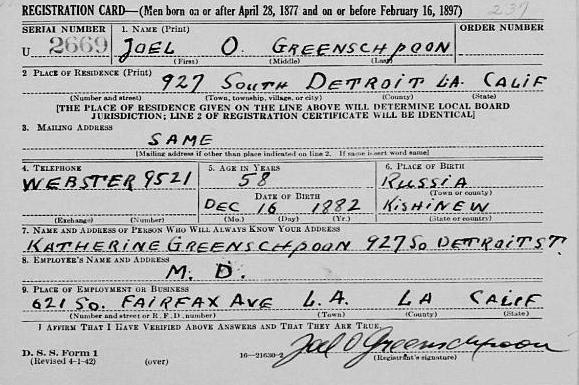 REGISTRATION CARD—(Men born on or after April 28, 1877 and on or before February 16, 1897) 237
SERIAL NUMBER 1. NAME (Print) ORDER NUMBER
U 2669 JOEL O. GREENSCHPOON
(First) (Middle) (Last)
2 PLACE OF RESIDENCE (Print)
927 SOUTH DETROIT LA. CALIF
(Number and street) (Town, township, village, or city) (County) (State)
[THE PLACE OF RESIDENCE GIVEN ON THE LINE ABOVE WILL DETERMINE LOCAL BOARD
JURISDICTION; LINE 2 OF REGISTRATION CERTIFICATE WILL BE IDENTICAL]
3. MAILING ADDRESS
SAME
[Mailing address if other than place indicated on line 2. If same insert word same]
4. TELEPHONE 5. AGE IN YEARS 6. PLACE OF BIRTH
WEBSTER 9521 58 RUSSIA
DATE OF BIRTH (Town or county)
DEC 16 1882 KISHINEW
(Exchange) (Number) (Mo.) (Day) (Yr.) (State or country)
7. NAME AND ADDRESS OF PERSON WHO WILL ALWAYS KNOW YOUR ADDRESS
KATHERINE GREENSCHPOON 927 SO DETROIT ST.
8. EMPLOYER'S NAME AND ADDRESS
M. D.
9. PLACE OF EMPLOYMENT OR BUSINESS
621 SO. FAIRFAX AVE L.A. LA CALIF
(Number and street or R. F. D. number) (Town) (County) (State)
I AFFIRM THAT I HAVE VERIFIED ABOVE ANSWERS AND THAT THEY ARE TRUE.
Joel O Greenschpoon
D. S. S. Form 1
(Revised 4-1-42) (over) 16—21630-2 (Registrant's signature)